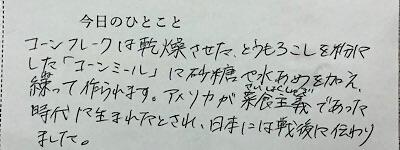 今日のひとこと
コーンフレークは乾燥させた、とうもろこしを粉に
した「コーンミール」に砂糖や水あめを加え、
練って作られます。アメリカが菜食主義であった
さいしょくしゅぎ
時代に生まれたとされ、日本には戦後に伝わり
ました。